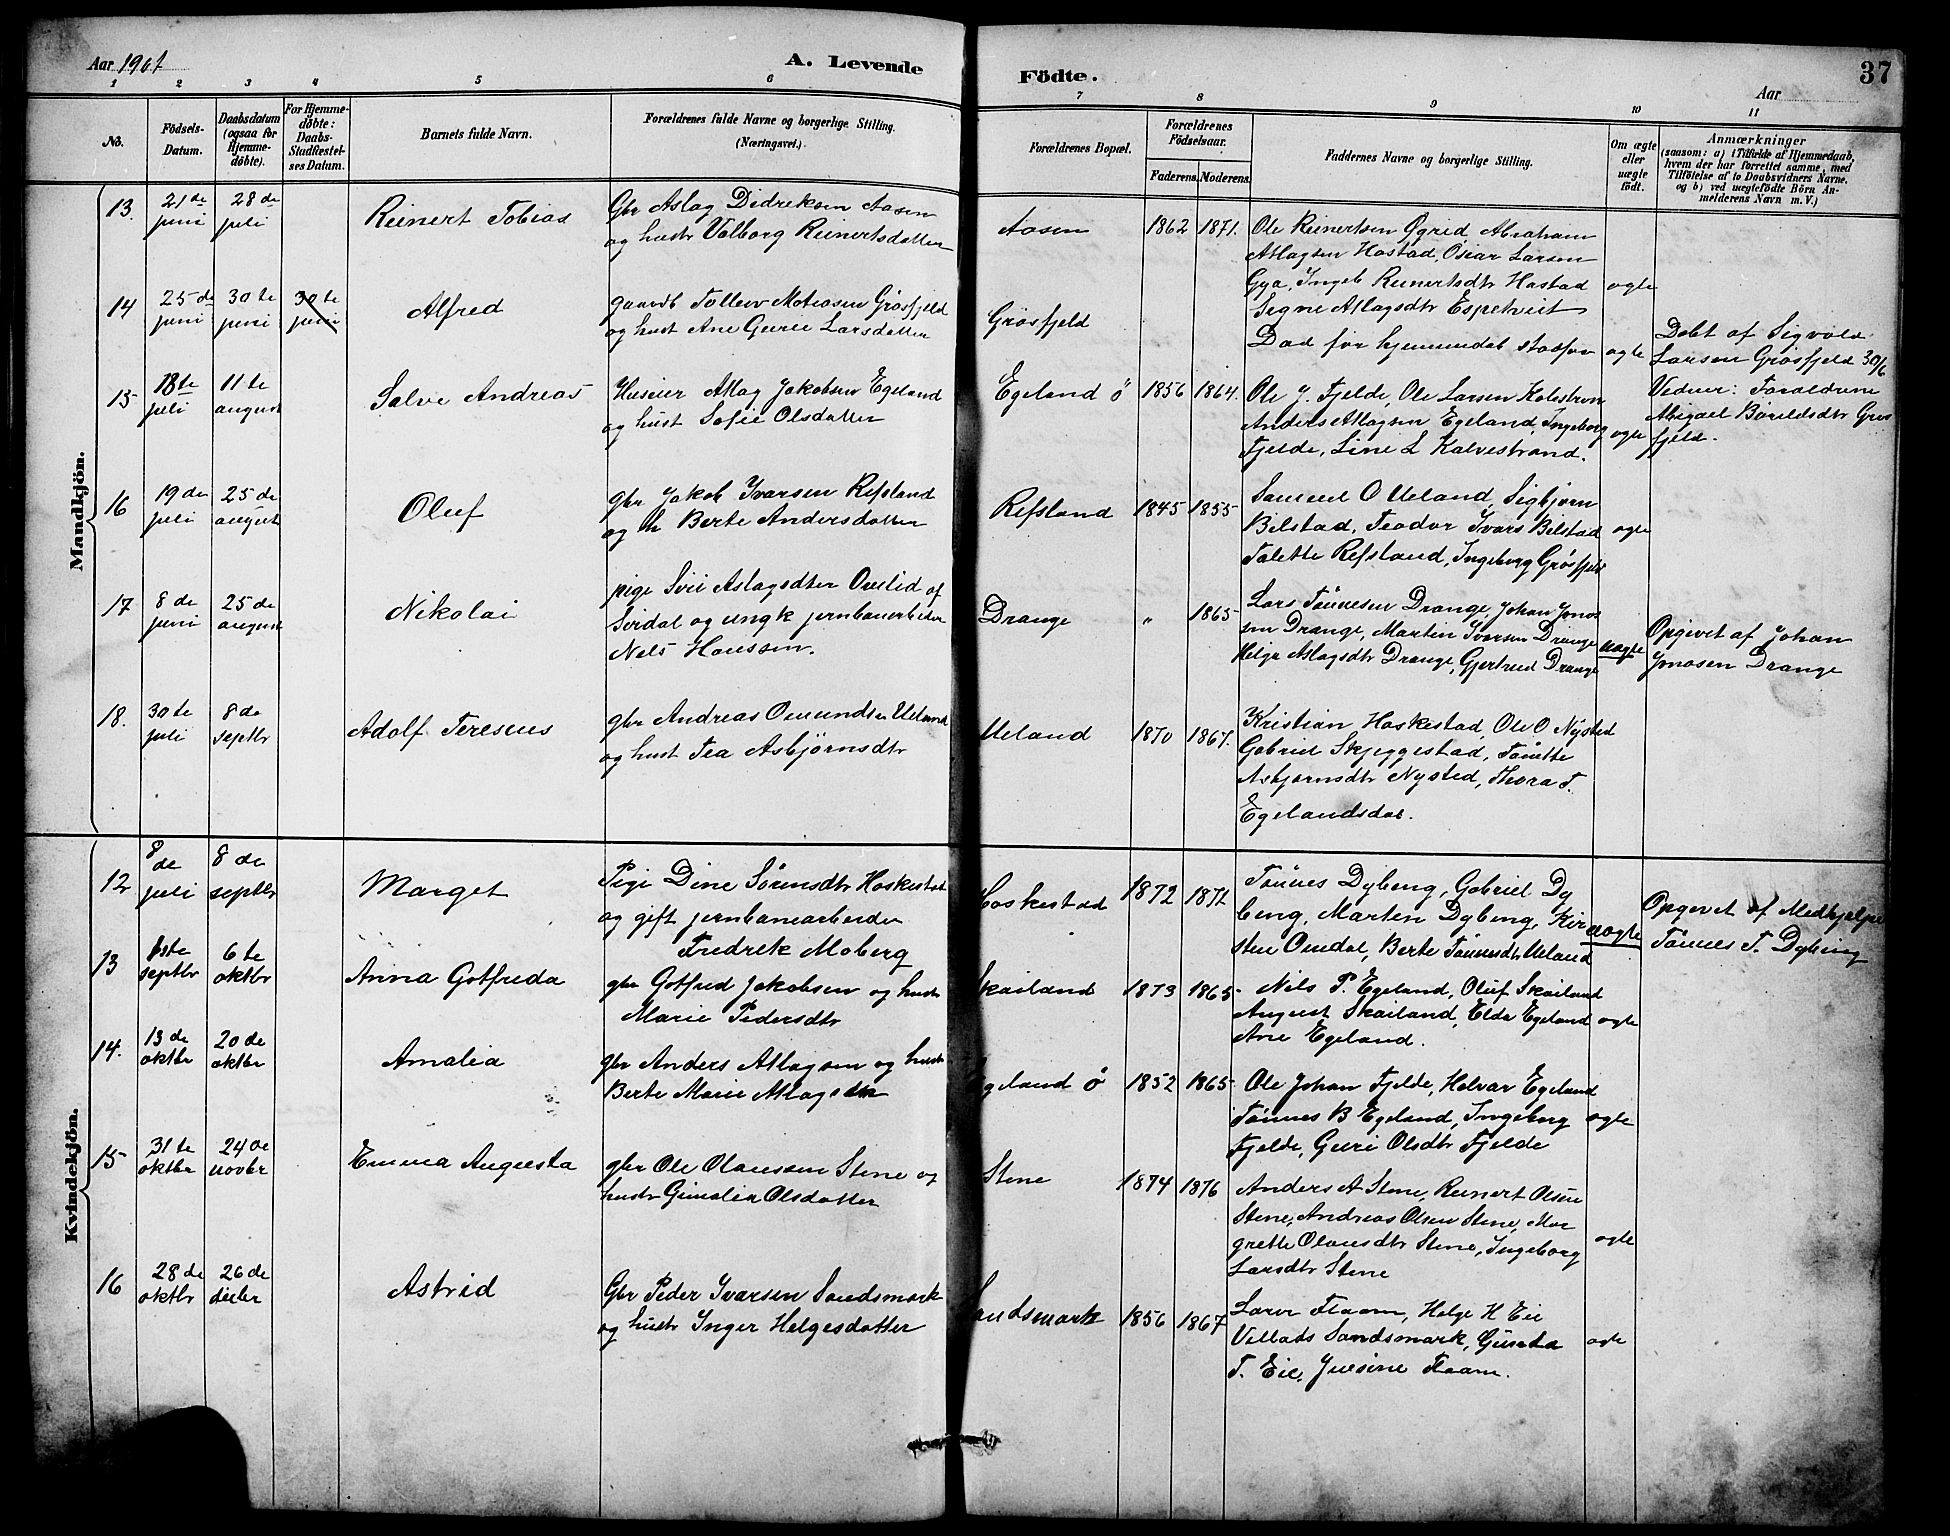 Aar 1901
A. Levende
Födte.
Aar
37
1 2 3 4 5 6 7 8 9 10 11
No.
Födsels-Datum.
Daabsdatum (ogsaa for Hjemme-döbte).
For Hjemme-döbte: Daabs-Stadfæstel-ses Datum.
Barnets fulde Navn.
Forældrenes fulde Navne og borgerlige Stilling. (Næringsvei.)
Forældrenes Bopæl.
Forældrenes Födselsaar.
Faderens. Moderens.
Faddernes Navne og borgerlige Stilling.
Om ægte eller uægte födt.
Anmærkninger
(saasom: a) i Tilfælde af Hjemmedaab,
hvem der har forrettet samme, med
Tilföielse af to Daabsvidners Navne,
og b) ved uægtefödte Börn An-
melderens Navn m. V.)
Mandkjön.
13. 21de juni 28de juli
Reinert Tobias
Gbr Aslag Didreksen Aasen
og hustr Valborg Reinertsdatter
Aasen 1862 1871.
Ole Reinertsen Øgrid, Abraham
Atlagsen Hastad, Oskar Larsen
Gya, Ingeb Reinertsdtr Hastad
Signe Atlagsdtr Espetveit
ægte
14 25de juni 30te juni 30te juni
Alfred
gaardb Tolleiv Matiasen Grøsfjeld
og hust Ane Gurie Larsdatter
Grøsfjeld
Død før hjemmedab stadf
ægte
Døbt af Sigvald
Larsen Grøsfjeld 30/6
Vidner: Forældrene
Abigael Bårildsdtr Grøs
fjeld.
15 18te juli 11te august
Salve Andreas
Huseier Atlag Jakobsen Egeland
og hust Sofie Olsdatter
Egeland ö 1856 1864.
Ole J. Fjelde, Ole Larsen Kalvstron
Anders Atlagsen Egeland, Ingeborg
Fjelde, Line L Kalvestrand.
ægte
16 19de juli 25de august
Oluf
gbr Jakob Ivarsen Refsland
og h Berte Andersdatter
Refsland 1845 1855
Samuel O Ueland, Sigbjørn
Bilstad, Teodor Ivars Bilstad
Talette Refsland, Ingeborg Grøsfjeld
ægte
17 8de juni 25de august
Nikolai
pige Siri Aslagsdter Omlid af
Sirdal og ungk jernbanearbeider
Nels Hanssen.
Drange " 1865
Lars Tønnesen Drange, Johan Jonas
sen Drange, Martin Ivarsen Drange
Helge Aslagsdtr Drange, Gjertrud Drange
uægte
Opgivet af Johan
Jonasen Drange
18. 30te juli 8de septbr
Adolf Teresius
gbr Andreas Omundsen Ueland
og hust Tea Asbjørnsdtr
Ueland 1870 1867.
Kristian Haskestad, Ole O Nysted
Gabriel Skjeggestad, Tønette
Asbjørnsdtr Nysted, Thora T.
Egelandsdal.
Kvindekjön.
12 8de juli 8de septbr
Marget
Pige Dine Sørensdtr Haskestad
og gift jernbanearbeider
Fredrek Moberg
Haskestad 1872 1871
Tønnes Dybeng, Gabriel Dy
beng, Marten Dybeng, Kir
sten Omdal, Berte Tønnesdtr Ueland
uægte
Opgevet af Medhjelper
Tønnes T. Dybing
13 septbr 6te oktbr
Anna Gotfreda
gbr Gotfred Jakobsen og hustr
Marie Pedersdtr
Skailand 1873 1865
Nils P. Egeland, Oluf Skailand
August Skailand, Elda Egeland
Ane Egeland.
ægte
14. 13de oktbr 20de oktbr
Amalia
gbr Anders Atlagsen og hustr
Berte Marie Atlagsdtr
Egeland ö 1852 1865
Ole Johan Fjelde, Halvar Egeland
Tønnes B Egeland, Ingeborg
Fjelde, Guri Olsdtr Fjelde
ægte
15 31te oktbr 24de novbr
Emma Augusta
gbr Ole Olaussen Stene og
hustr Gimalia Olsdatter
Stene 1874 1876
Anders A Stene, Reinert Olsen
Stene, Andreas Olsen Stene, Mar
grette Olausdtr Stene, Ingeborg
Larsdtr Stene
ægte
16 28de oktbr 26de decbr
Astrid
Gbr Peder Ivarsen Sandsmark
og hustr Inger Helgesdatter
Sandsmark 1856 1867
Flaam, Helge H Eie
Villads Sandsmark, Gunda
T. Eie, Flaam.
ægte